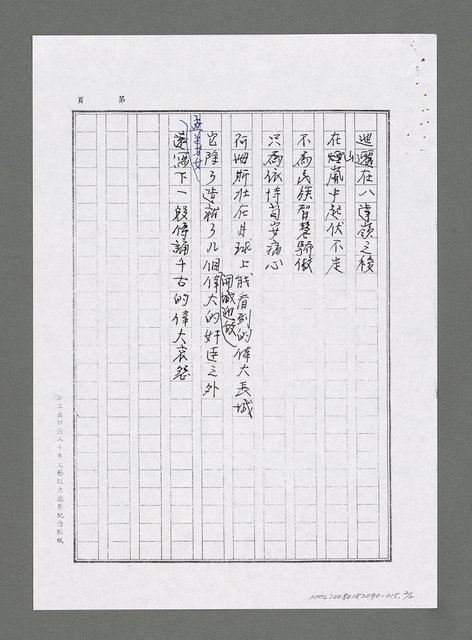 第　頁
迤邐在八達嶺之後
在煙山嵐中起伏不定
不為民族智慧驕傲
只為依恃苟安痛心
阿姆斯壯在月球上能看到的偉大長城
它除了造就了几個開城迎敵偉大的奸臣之外
孟姜女
還寫下一段傳誦千古的偉大哀怨
NMTL20080180090-015, 2/2